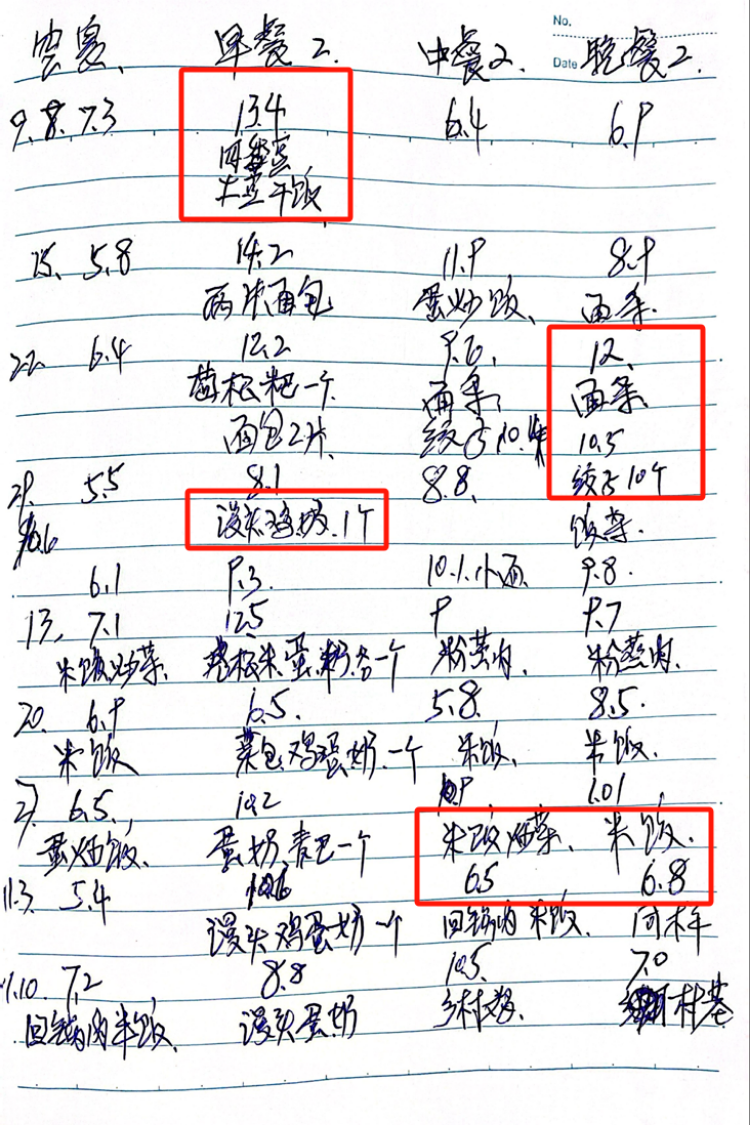 No.
Date
空腹、 早餐2. 中餐2. 晚餐2.
9.8. 7.3 13.4 6.4 6.9
土豆干饭
15、 5.8 14.2 11.9 8.9
两片面包 蛋炒饭、 面条
22. 6.4 12.2 9.6、 12、
一个 面条 面条
面包2片 饺子10 10.5
29. 5.5 8.1 8.8、 饺子10个
馒头鸡奶、1个 饭菜.
10.6
6.1 9.3 10.1.小面 9.8
13、 7.1 12.5 9 9.7
米饭炒菜. 米蛋奶各一个 粉蒸肉、 粉蒸肉.
20. 6.9 6.5. 5.8. 8.5.
米饭 菜包鸡蛋奶.一个 米饭、 米饭.
27. 6.5、 10.2 10.9、 1.01
蛋炒饭、 蛋奶 一个 米饭炒菜、 米饭.
11.3. 5.4 65 6.8
馒头鸡蛋奶一个 回锅肉米饭、 同样
11.10. 7.2 8.8 10.5. 7.0
回锅肉米饭、 馒头蛋奶 乡村基 村基